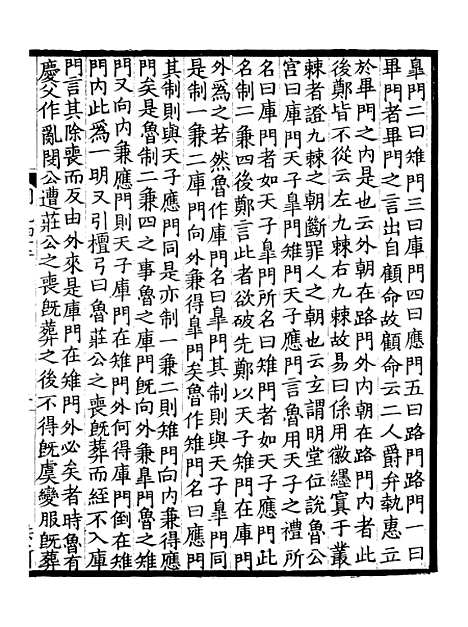 皐門二曰雉門三曰庫門四曰應門五曰路門路門一曰
畢門者畢門之言出自顧命故顧命云二人爵弁執惠立
於畢門之内是也云外朝在路門外内朝在路門内者此
後鄭皆不從云左九棘右九棘故易曰係用徽纆寘于叢
棘者證九棘之朝斷罪人之朝也云玄謂明堂位說魯公
宫曰庫門天子皐門雉門天子應門言魯用天子之禮所
名曰庫門者如天子皐門所名曰雉門者如天子應門此
名制二兼四後鄭言此者欲破先鄭以天子雉門在庫門
外爲之若然魯作庫門名曰皐門其制則與天子皐門同
是制一兼二庫門向外兼得皐門矣魯作雉門名曰應門
其制則與天子應門同是亦制一兼二則雉門向内兼得應
門矣是魯制二兼四之事魯之庫門旣向外兼皐門魯之雉
門又向内兼應門則天子庫門在雉門外何得庫門倒在雉
門内此爲一明又引檀弓曰魯莊公之喪旣葬而絰不入庫
門言其除喪而反由外來是庫門在雉門外必矣者時魯有
慶父作亂閔公遭莊公之喪旣葬之後不得旣虞變服旣葬